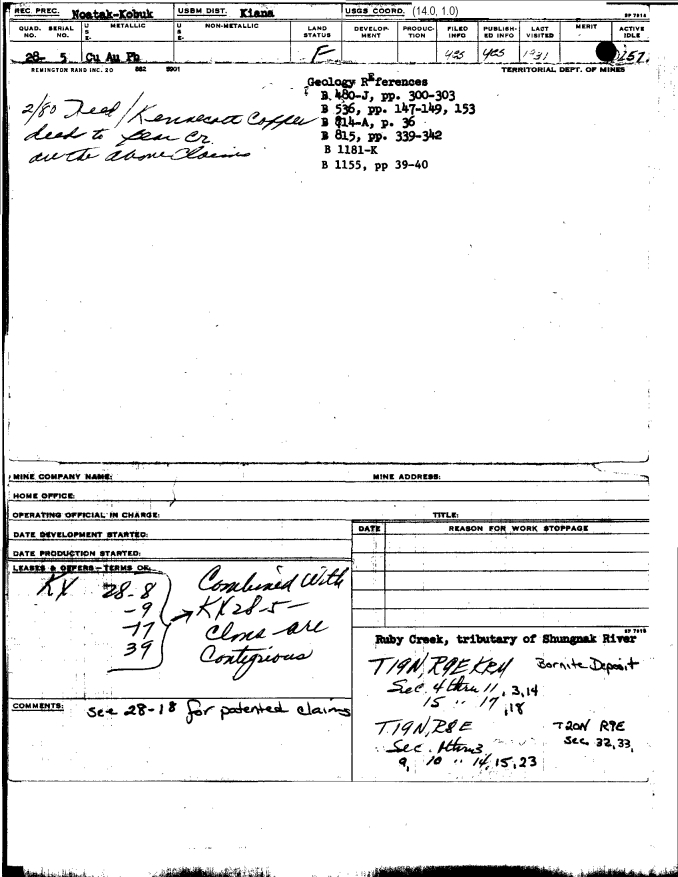 REC. PREC. Noatak-Kobuk USBM DIST. Kiana USGS COORD. (14.0, 1.0) SP 7914
QUAD. NO. SERIAL NO. USE- METALLIC USE- NON-METALLIC LAND STATUS DEVELOP-MENT PRODUC-TION FILED INFO PUBLISH-ED INFO LAST VISITED MERIT ACTIVE IDLE
28- 5 Cu Au Pb F 425 425 1931
REMINGTON RAND INC. 20 882 5901 TERRITORIAL DEPT. OF MINES
Geology References
B 480-J, pp. 300-303
B 536, pp. 147-149, 153
B 814-A, p. 36
B 815, pp. 339-342
B 1181-K
B 1155, pp 39-40
2/80 Deed / Kennecott Copper
deed to Bear Cr.
all the above Claims
MINE COMPANY NAME: MINE ADDRESS:
HOME OFFICE:
OPERATING OFFICIAL IN CHARGE: TITLE:
DATE DEVELOPMENT STARTED:
DATE PRODUCTION STARTED:
DATE REASON FOR WORK STOPPAGE
LEASES & OFFERS-TERMS OF:
KX 28-8
-9
-17
39
Combined With
KX 28-5-
Clms are
Contigious
COMMENTS: see 28-18 for patented claims
SP 7915
Ruby Creek, tributary of Shungnak River
T19N, R9E KRM Bornite Deposit
Sec. 4 thru 11, 3, 14
15 " 17, 18
T.19N, R8E
Sec. 1 thru 3
9, 10 " 14, 15, 23
T20N R9E
Sec. 32, 33,